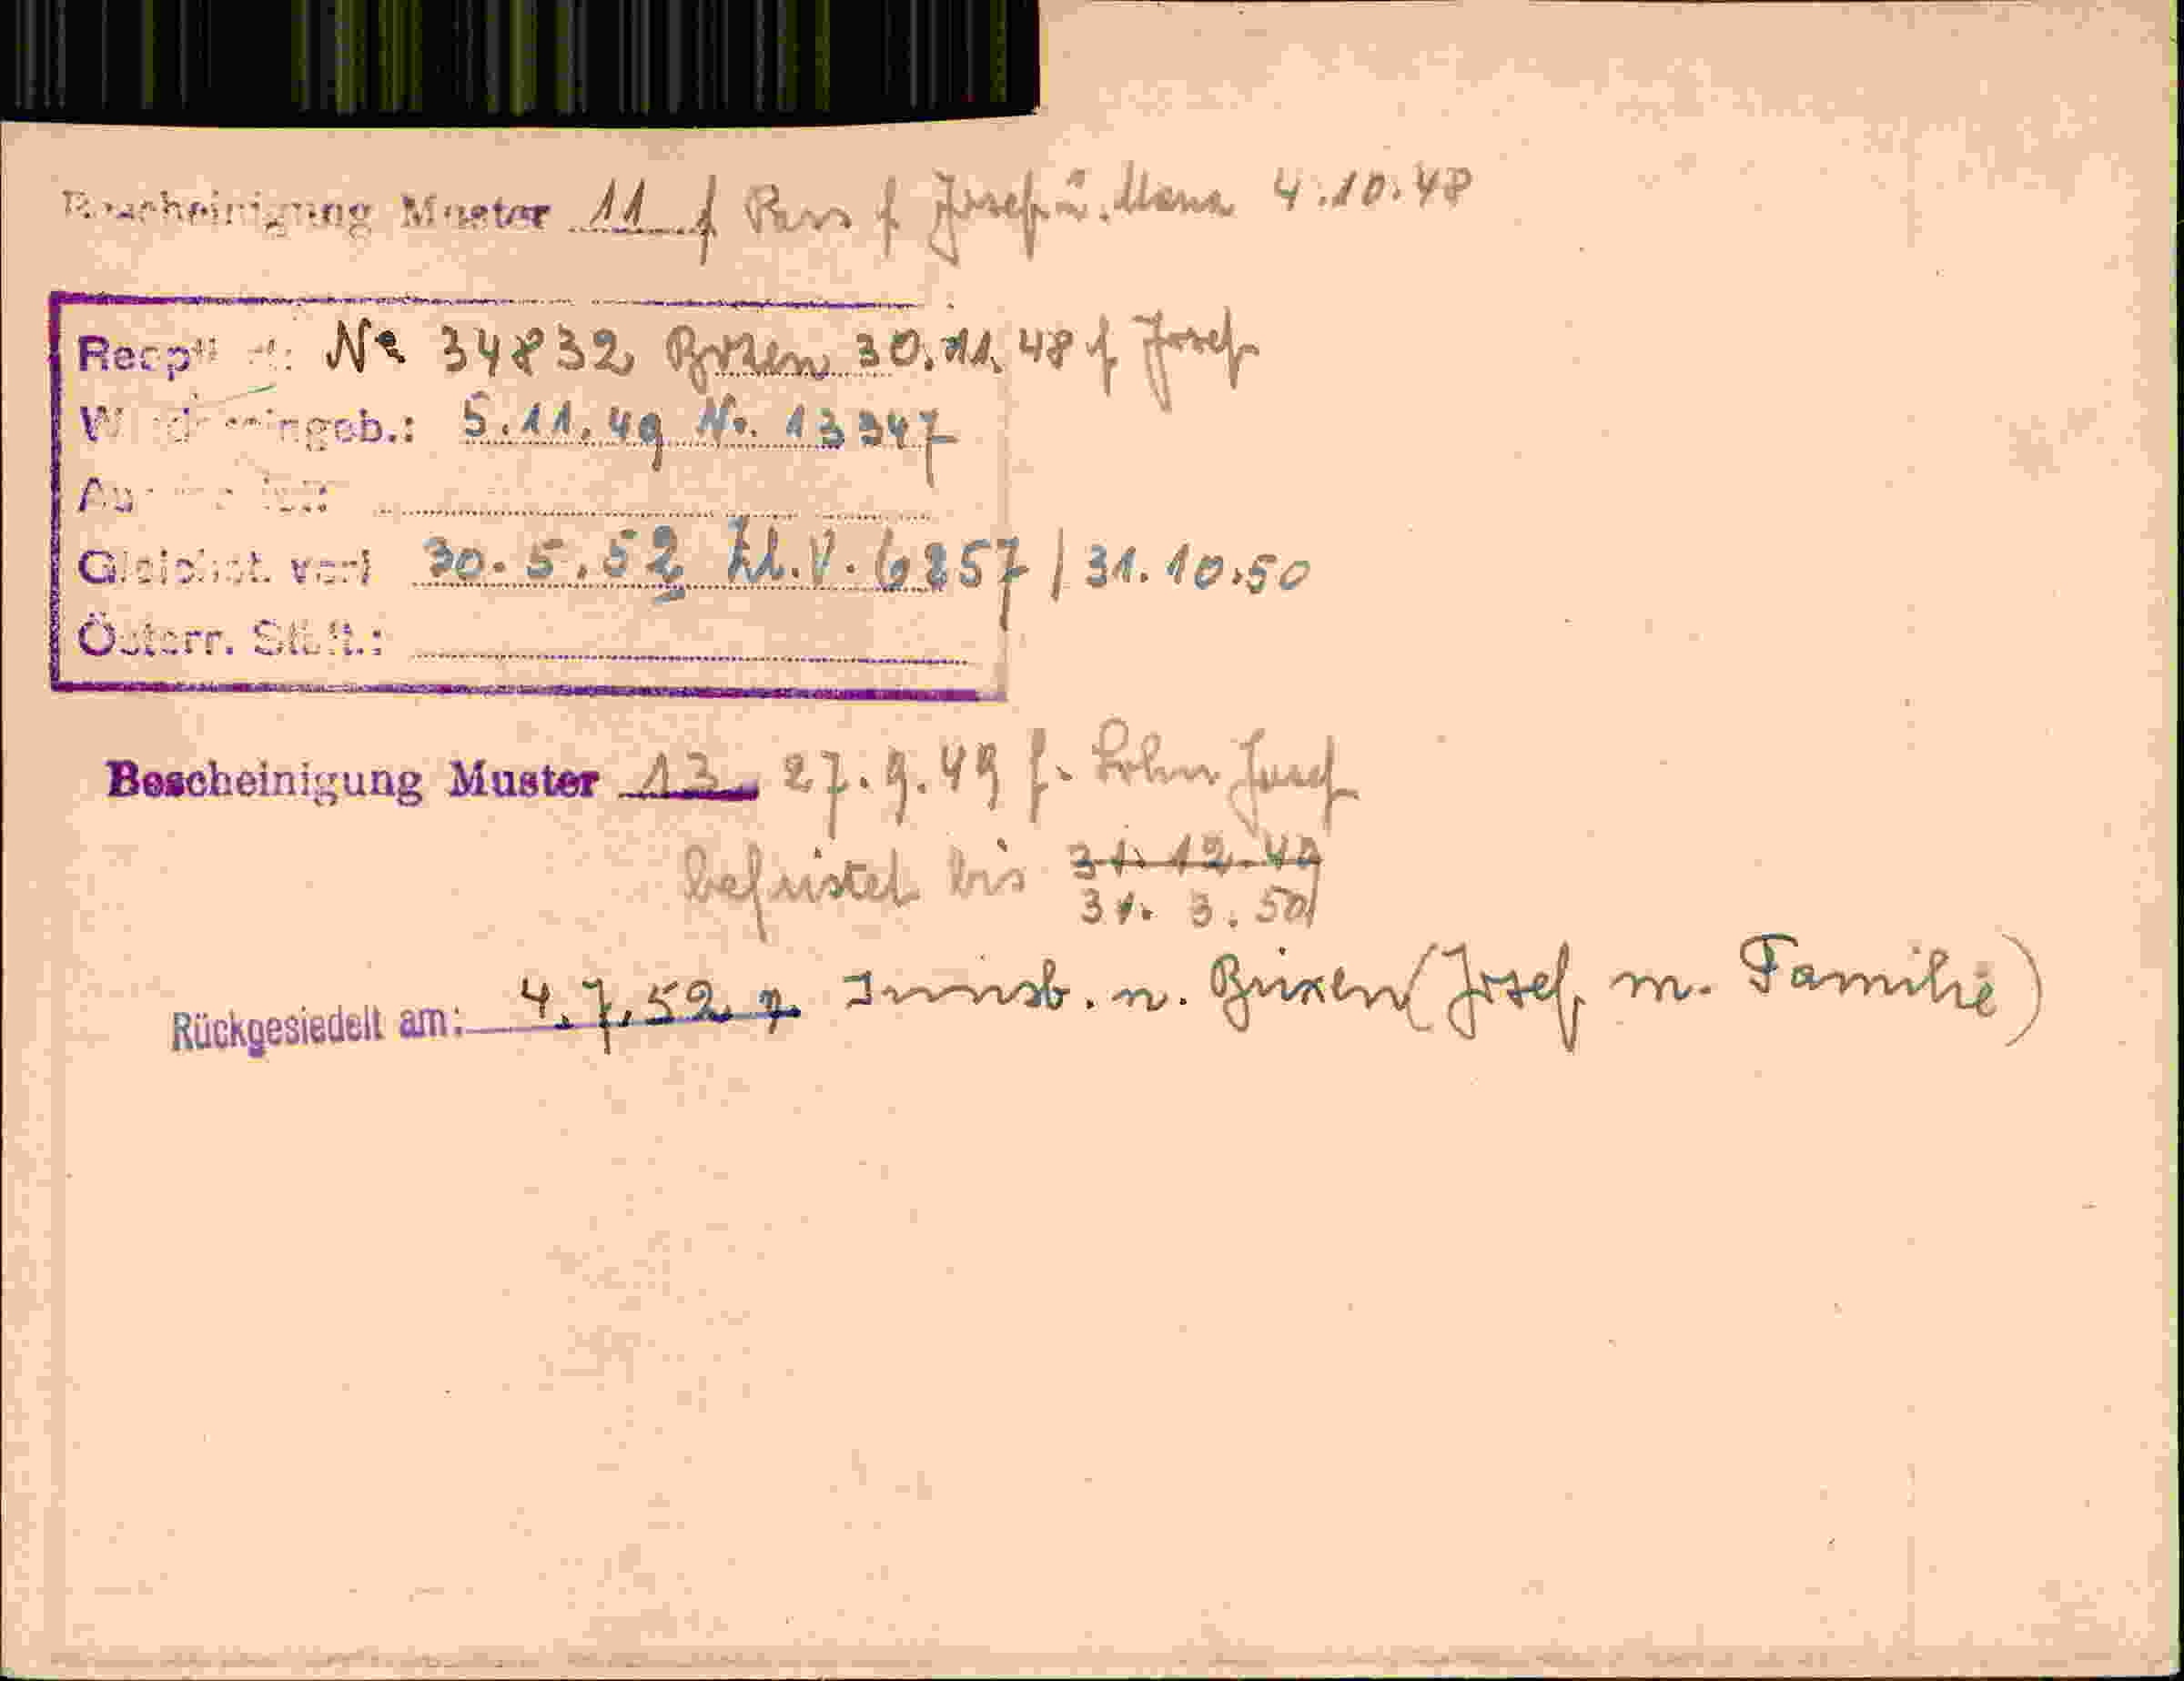 Bescheinigung Muster 11 f Pass f Josef u. Maria 4.10.48
Reopt № 34832 Bozen 30.11.48 f Josef
5.11.49 Nr. 13347
Gleichst. verl 30.5.52 Zl.V. 6257 / 31.10.50
Österr. Stbft.:
Bescheinigung Muster 13 27.9.49 f. Sohn Josef
befristet bis 31.12.49
31. 3. 50
Rückgesiedelt am: 4.7.52 v. Innsb. n. Brixen (Josef m. Familie)